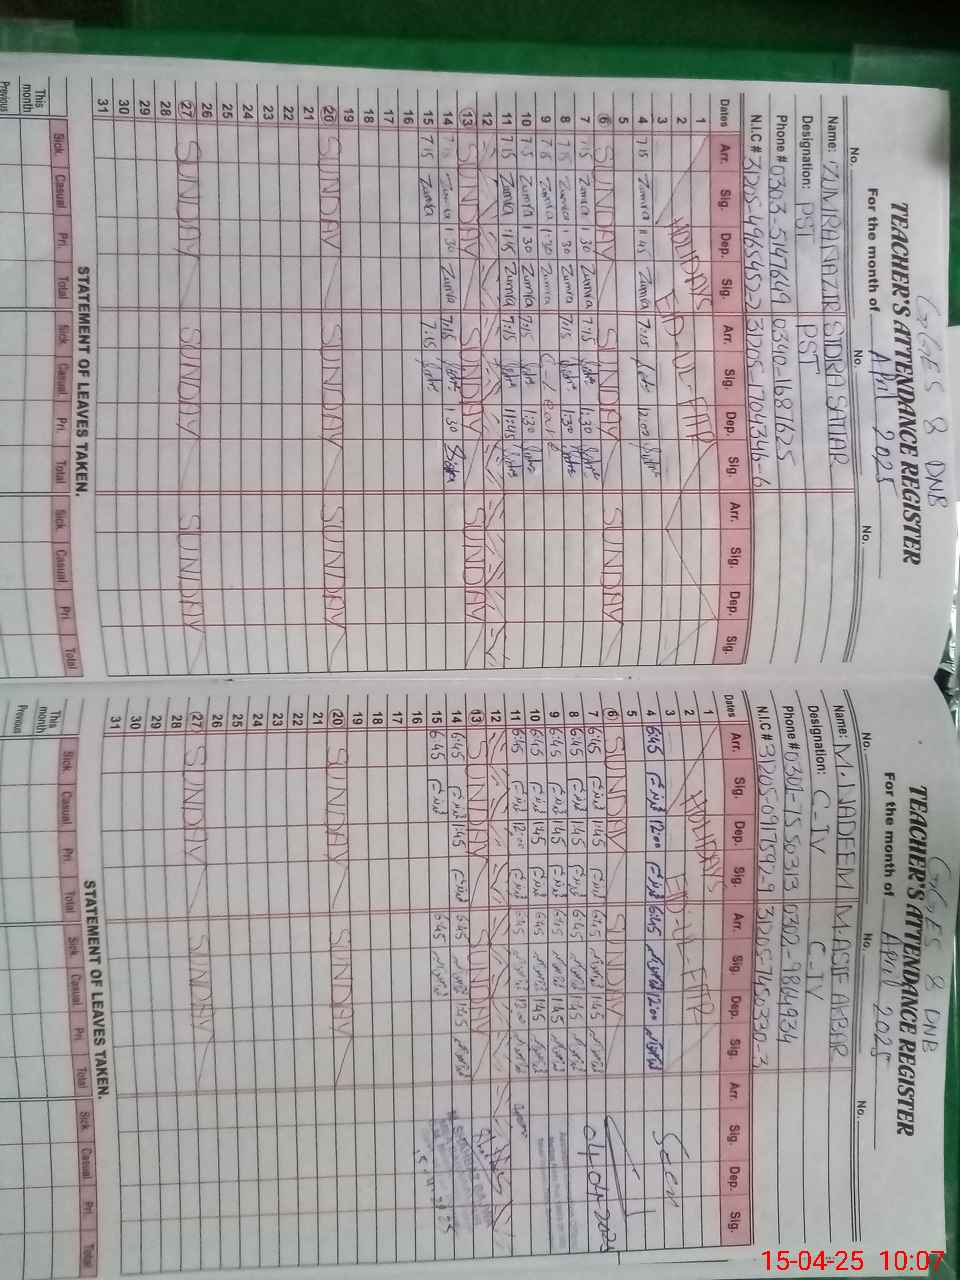 GGES 8 DNB
TEACHER'S ATTENDANCE REGISTER
For the month of April 2025
No. No. No.
Name: ZUMRA NAZIR SIDRA SATTAR
Designation: PST PST
Phone # 0303-5147649 0340-1681625
N.I.C #
Dates Arr. Sig. Dep. Sig. Arr. Sig. Dep. Sig. Arr. Sig. Dep. Sig.
1
2 HOLIDAYS EID-UL-FITR
3
4 715 Zumra 11 45 Zumra 7:15 12:00
5
6 SUNDAY SUNDAY SUNDAY
7 715 Zumra 1 30 Zumra 7:15 1:30
8 715 Zumra 1 30 Zumra 7:15 1:30
9 715 Zumra 1:30 Zumra C-leave
10 715 Zumra 1 30 Zumra 7:15 1:30
11 715 Zumra Zumra 7:15 11:45
12
13 SUNDAY SUNDAY SUNDAY
14 715 Zumra 1 30 Zumra 7:15 1 30 Sidra
15 715 Zumra 7:15
16
17
18
19
20 SUNDAY SUNDAY SUNDAY
21
22
23
24
25
26
27 SUNDAY SUNDAY SUNDAY
28
29
30
31
STATEMENT OF LEAVES TAKEN.
Sick Casual Pri. Total Sick Casual Pri. Total Sick Casual Pri. Total
This month
Previous
GGES 8 DNB
TEACHER'S ATTENDANCE REGISTER
For the month of April 2025
No. No. No.
Name: M. NADEEM M. ASIF AKBAR
Designation: C-IV C-IV
Phone # 0301-7550313 0302-9864934
N.I.C #
Dates Arr. Sig. Dep. Sig. Arr. Sig. Dep. Sig. Arr. Sig. Dep. Sig.
1
2 HOLIDAYS EID-UL-FITR
3
4 6:45 12:00 6:45 12:00 Seen
5
6 SUNDAY SUNDAY
7 6:45 1:45 6:45 1:45 04-04-2025
8 6:45 1:45 6:45 1:45
9 6:45 1:45 6:45 1:45
10 6:45 1:45 6:45 1:45
11 6:45 12:00 6:45 12:00
12
13 SUNDAY SUNDAY
14 6:45 1:45 6:45 1:45
15 6:45 6:45
16
17
18
19
20 SUNDAY SUNDAY
21
22
23
24
25
26
27 SUNDAY SUNDAY
28
29
30
31
STATEMENT OF LEAVES TAKEN.
Sick Casual Pri. Total Sick Casual Pri. Total Sick Casual Pri. Total
This month
Previous
15-04-25 10:07